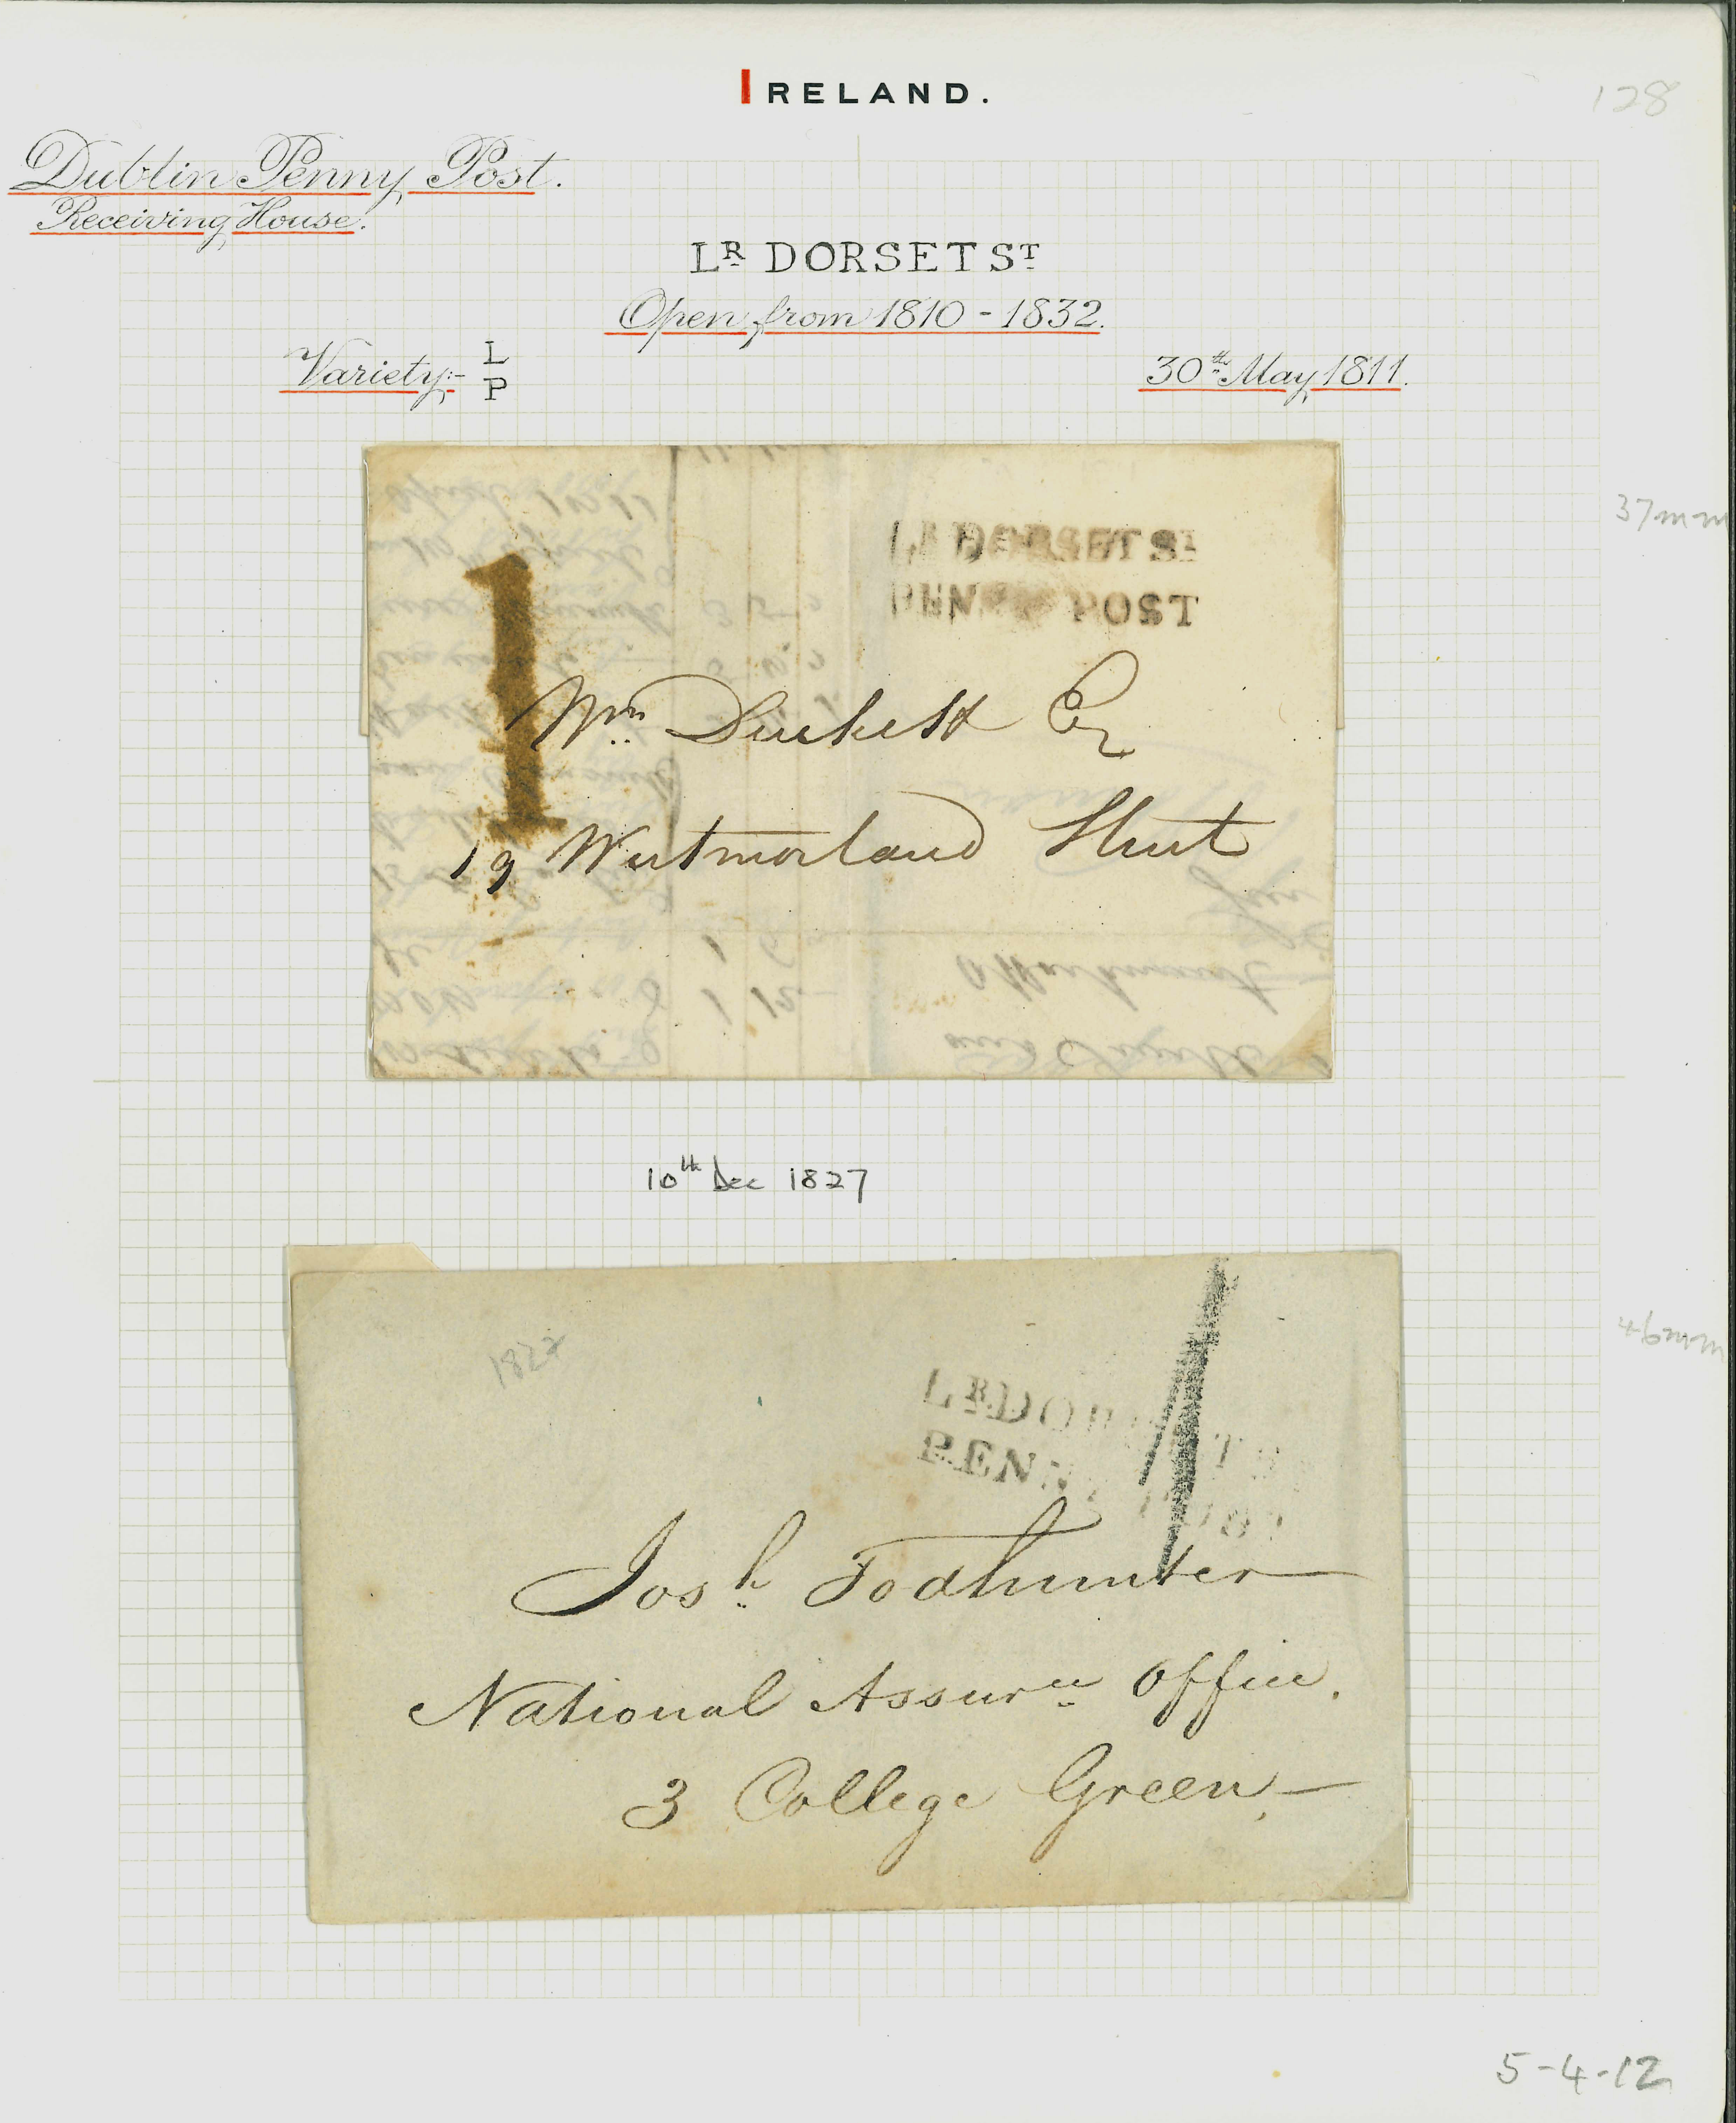 IRELAND.
128
Dublin Penny Post.
Receiving House.
LR DORSET ST
Open from 1810 - 1832.
Variety:- L
P
30th May 1811.
37mm
LR DORSET ST
PENNY POST
1
Wm Duckett Esq
19 Westmorland Street
10th Dec 1827
46mm
1827
LR DORSET S
PENNY POST
Josh Todhunter
National Assurce Office.
3 College Green
5-4-12